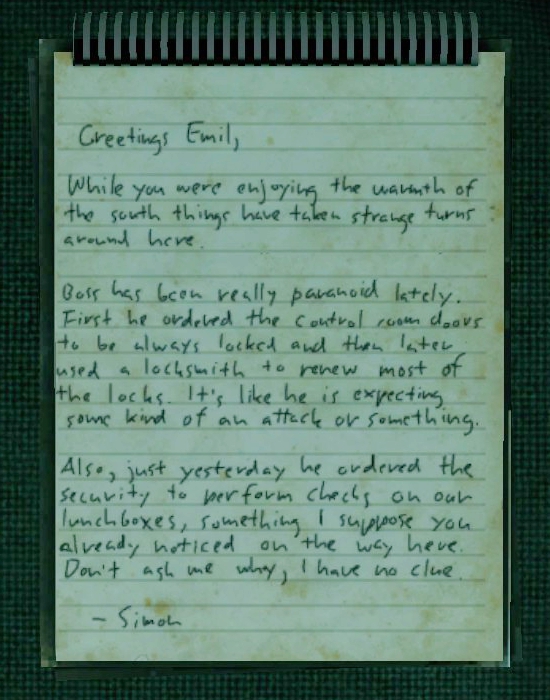 Greetings Emil,
While you were enjoying the warmth of
the south things have taken strange turns
around here.
Boss has been really paranoid lately.
First he ordered the control room doors
to be always locked and then later
used a locksmith to renew most of
the locks. It's like he is expecting
some kind of an attack or something.
Also, just yesterday he ordered the
security to perform checks on our
lunchboxes, something I suppose you
already noticed on the way here.
Don't ask me why, I have no clue.
- Simon